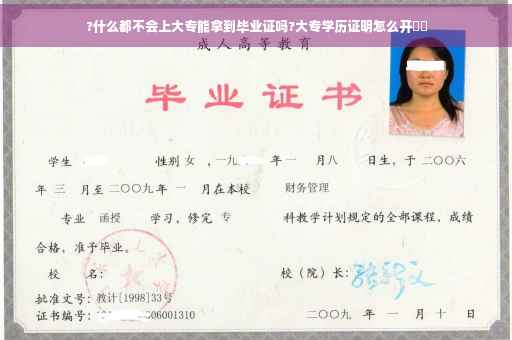 ?什么都不会上大专能拿到毕业证吗?大专学历证明怎么开
成人高等教育
毕业证书
学生 性别 女 ,一九 年一 月八 日生，于二〇〇六
年 三 月至二〇〇九年 一 月在本校 财务管理
专业 函授 学习，修完 专 科教学计划规定的全部课程，成绩
合格，准予毕业。
校 名： 校（院）长：
批准文号：教计[1998]33号
证书编号： 06001310 二〇〇九 年 一 月 十 日